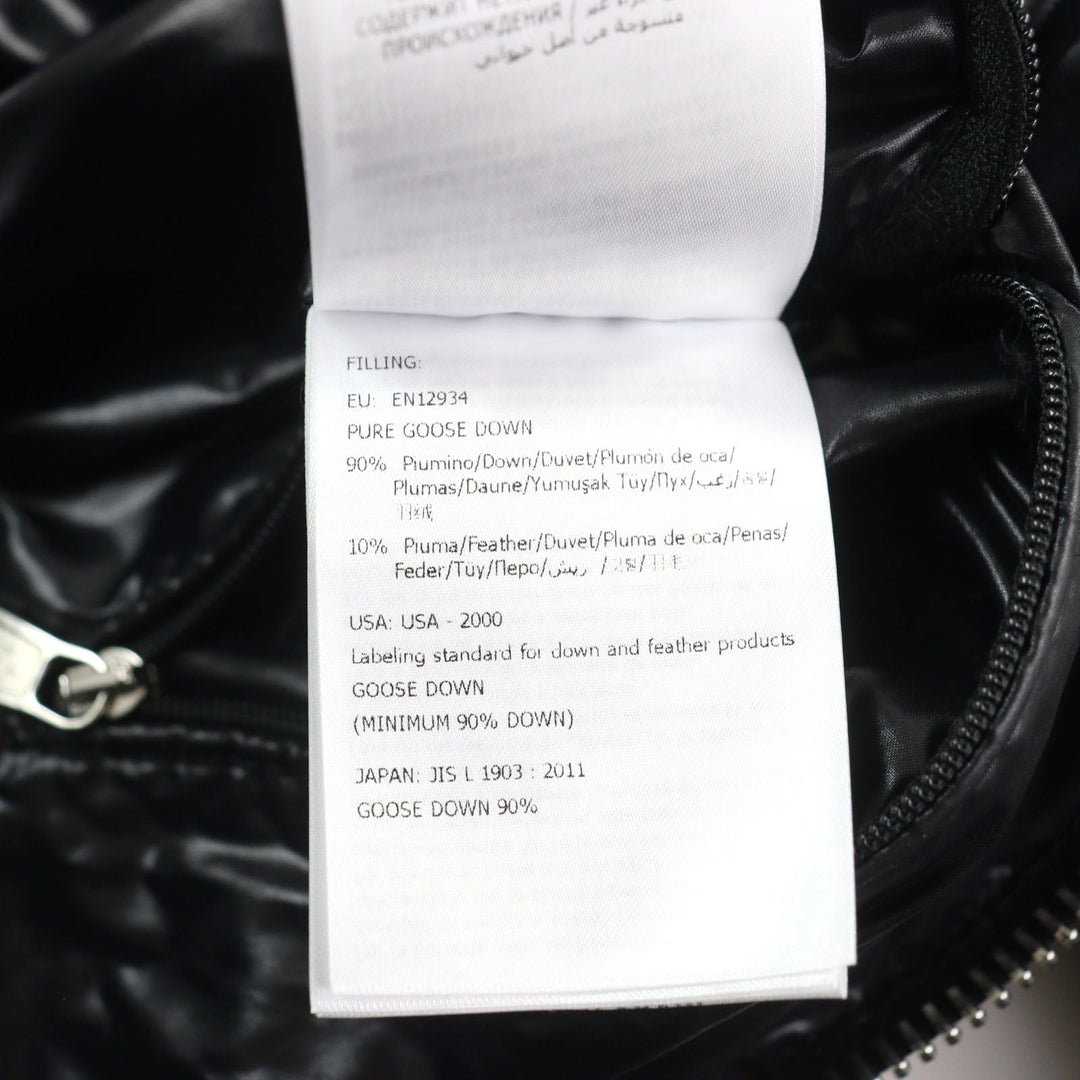 СОДЕРЖИТ
ПРОИСХОЖДЕНИЯ / غير
منسوجة من أصل حيواني
FILLING:
EU: EN12934
PURE GOOSE DOWN
90% Piumino/Down/Duvet/Plumón de oca/
Plumas/Daune/Yumuşak Tüy/Пух/زغب/
10% Piuma/Feather/Duvet/Pluma de oca/Penas/
Feder/Tüy/Перо/ريش /
USA: USA - 2000
Labeling standard for down and feather products
GOOSE DOWN
(MINIMUM 90% DOWN)
JAPAN: JIS L 1903 : 2011
GOOSE DOWN 90%